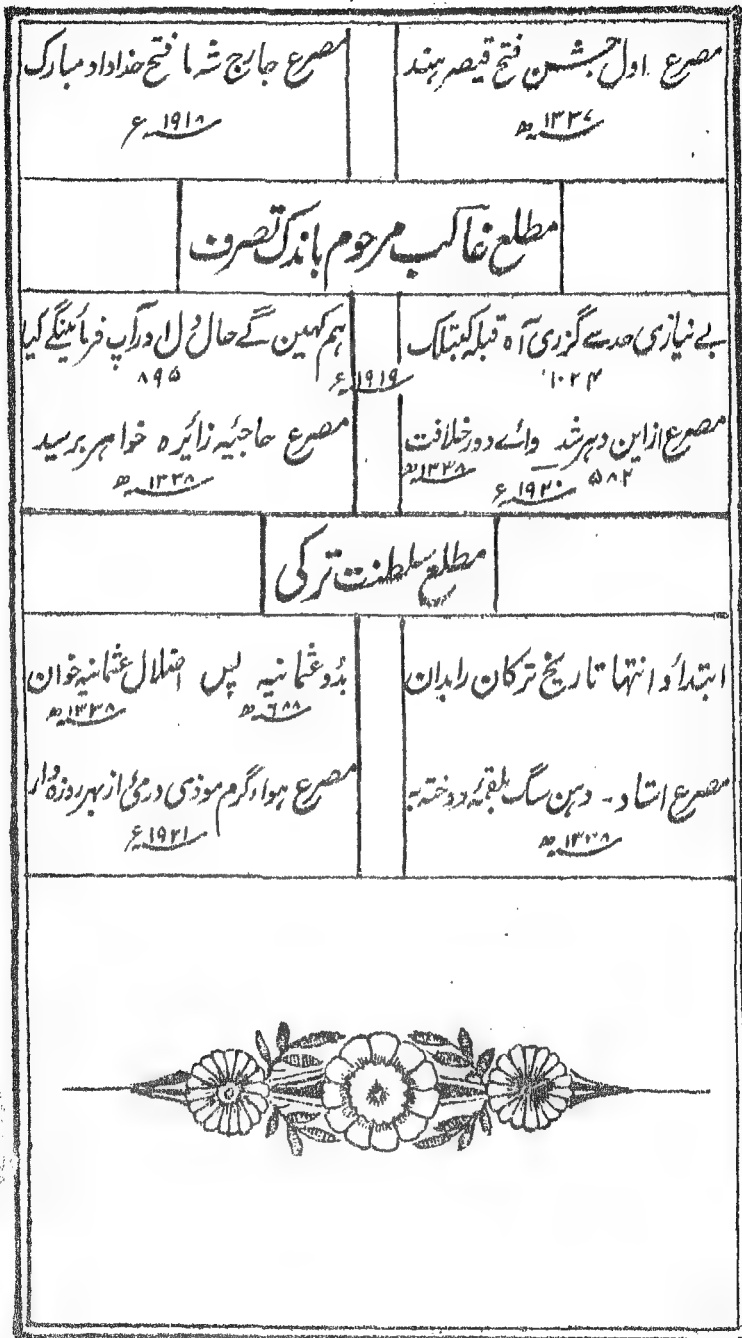 مصرع اول جشن فتح قیصر ہند
۱۳۳۷ھ
مصرع جارج شہ ما فتح خداداد مبارک
۱۹۱۸ء
مطلع غالب مرحوم باندک تصرف
بے نیازی حد سے گزری آہ قبلہ کبتلک
۱۰۲۴
ہم کہین گے حال دل اور آپ فرمائینگے کیا
۸۹۵
۱۹۱۹ء
مصرع ازین دہر شد وائے دور خلافت
۱۳۳۸ھ
۵۸۲
۱۹۲۰ء
مصرع حاجیہ زائرہ خواہر برسید
۱۳۳۸ھ
مطلع سلطنت ترکی
ابتداؤ انتہا تاریخ ترکان را بدان
بدو عثمانیہ پس اضلال عثمانیہ خوان
۶۸۸ھ
۱۳۳۸ھ
مصرع استاد - دہن سگ بلقمہ دوختہ بہ
۱۳۳۸ھ
مصرع ہواء گرم موذی در مئی از بہر روزہ دار
۱۹۲۱ء